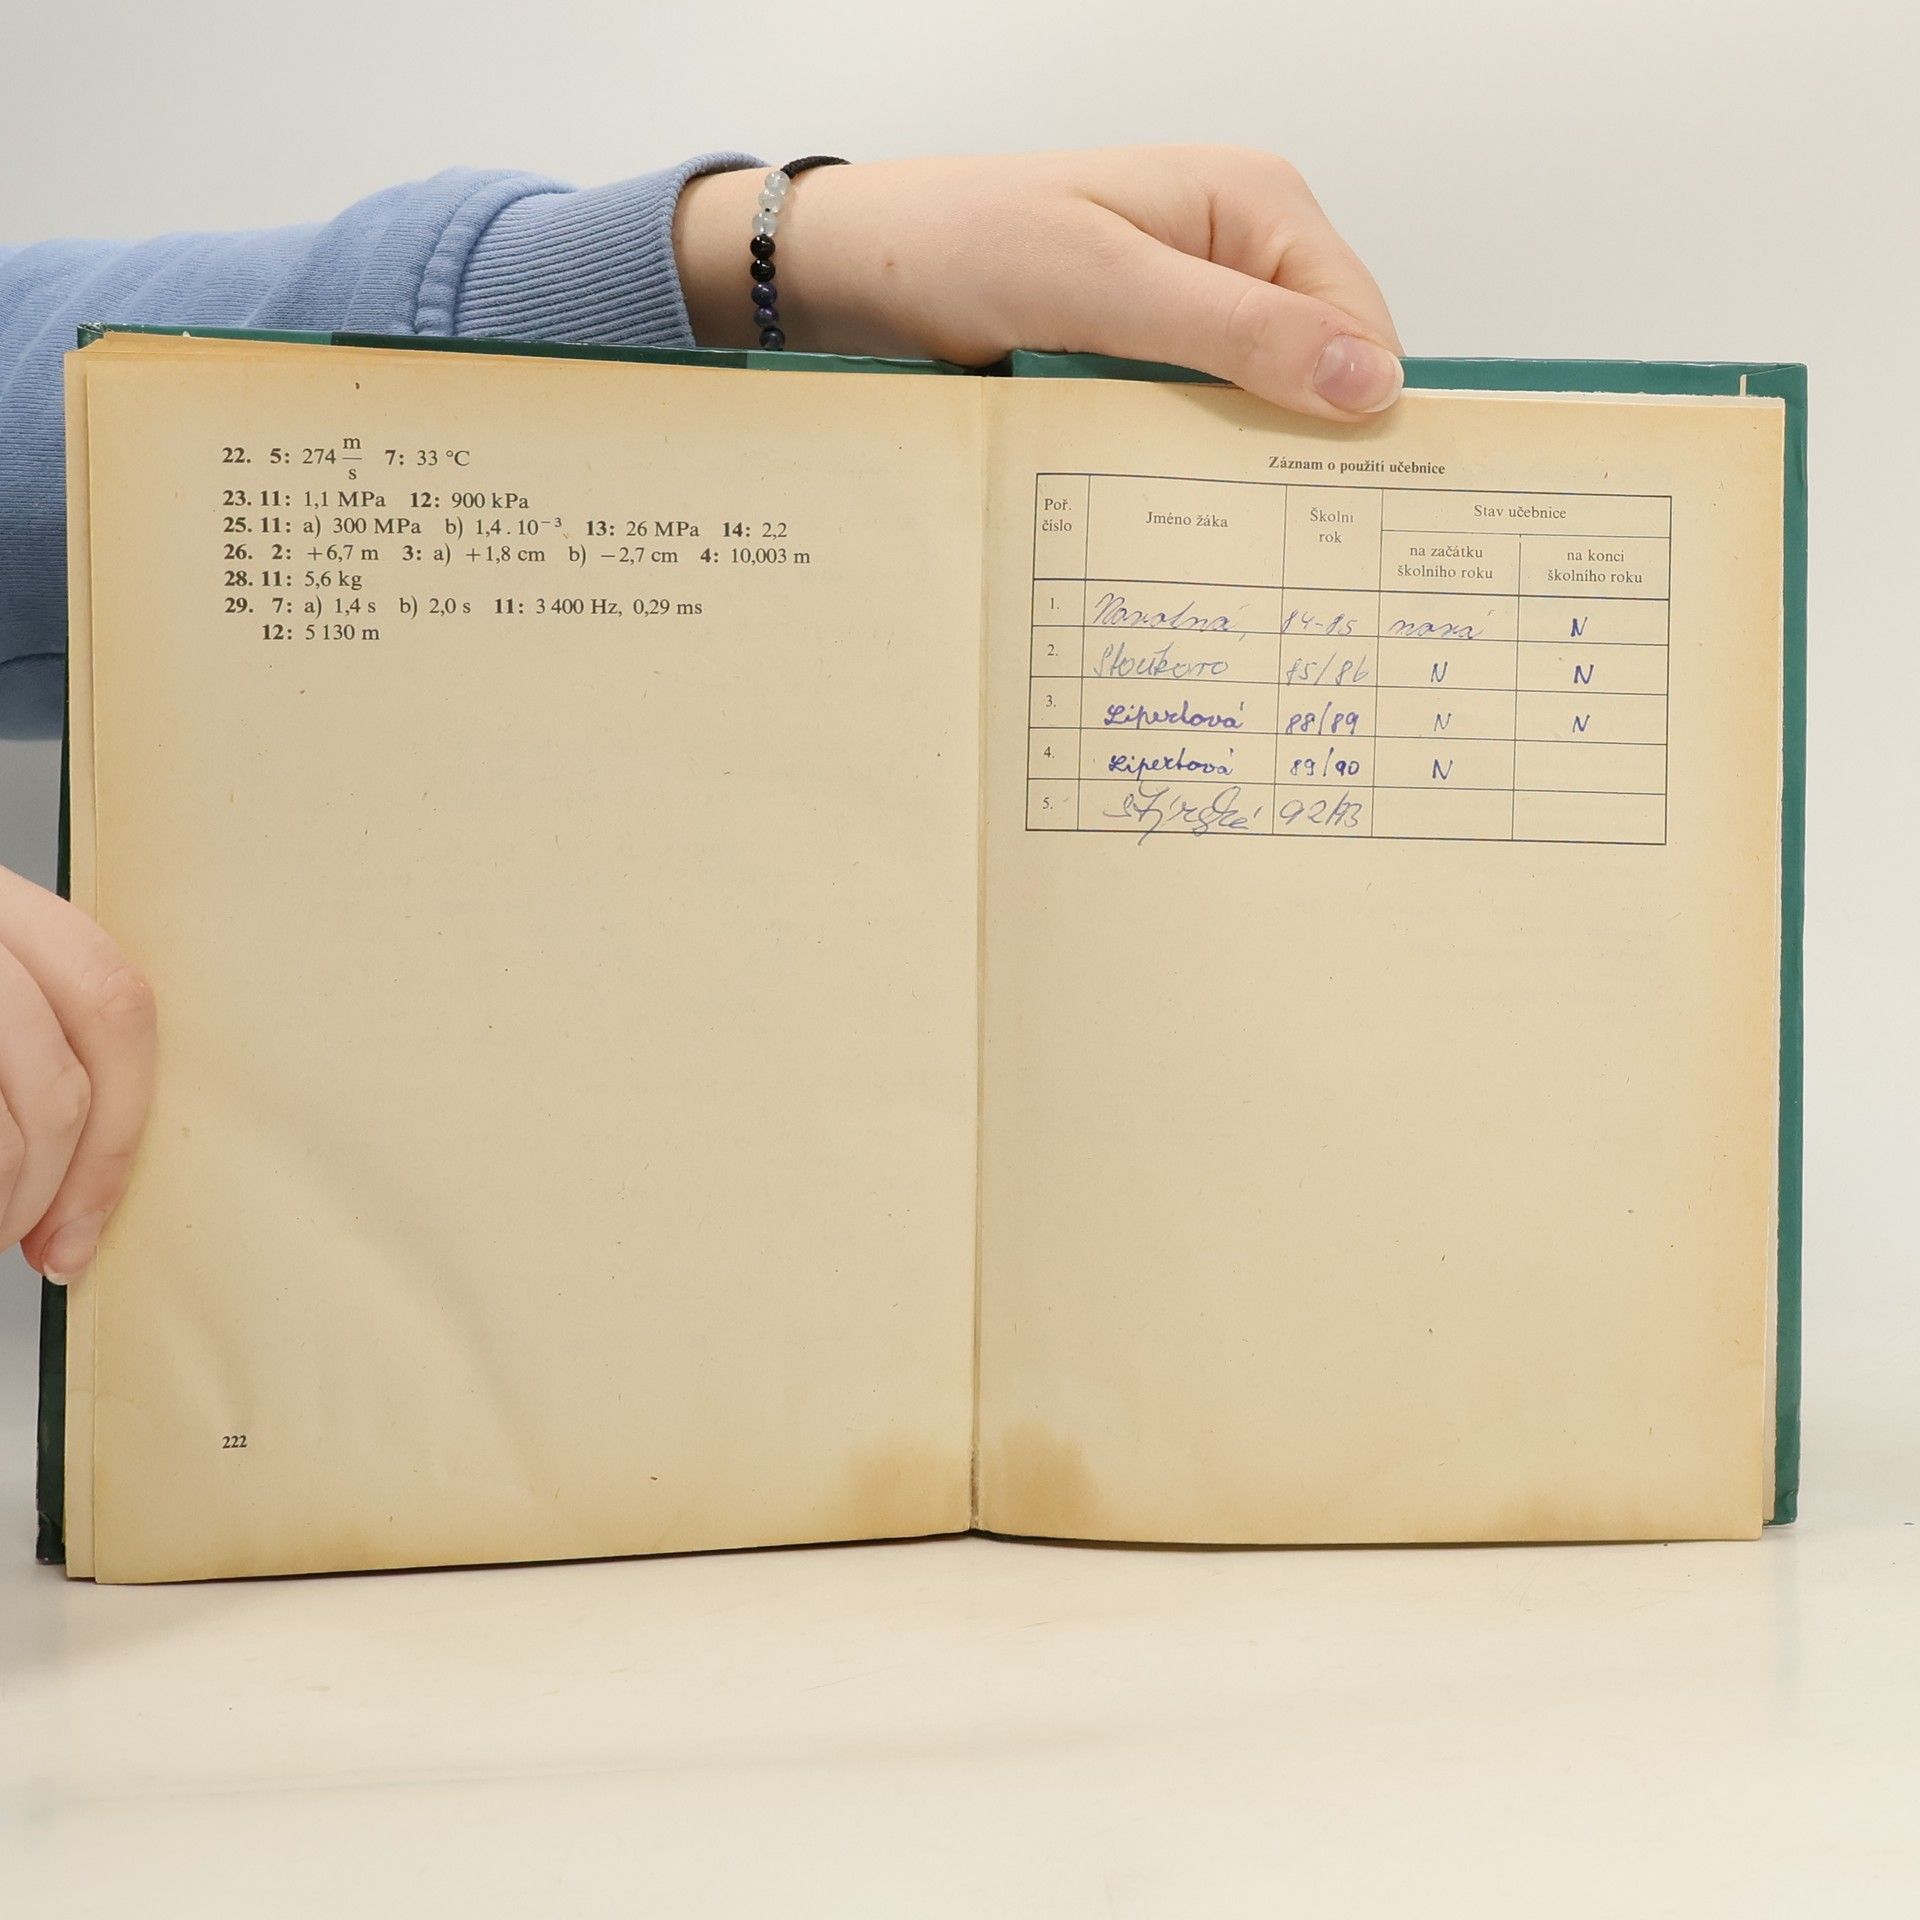 22. 5: 274 m/s 7: 33 °C
23. 11: 1,1 MPa 12: 900 kPa
25. 11: a) 300 MPa b) 1,4 . 10⁻³ 13: 26 MPa 14: 2,2
26. 2: +6,7 m 3: a) +1,8 cm b) −2,7 cm 4: 10,003 m
28. 11: 5,6 kg
29. 7: a) 1,4 s b) 2,0 s 11: 3 400 Hz, 0,29 ms
12: 5 130 m
222
Záznam o použití učebnice
Poř. číslo Jméno žáka Školní rok Stav učebnice
na začátku školního roku na konci školního roku
1. 84-85 nová N
2. 85/86 N N
3. Lipertová 88/89 N N
4. Lipertová 89/90 N
5. 92/93